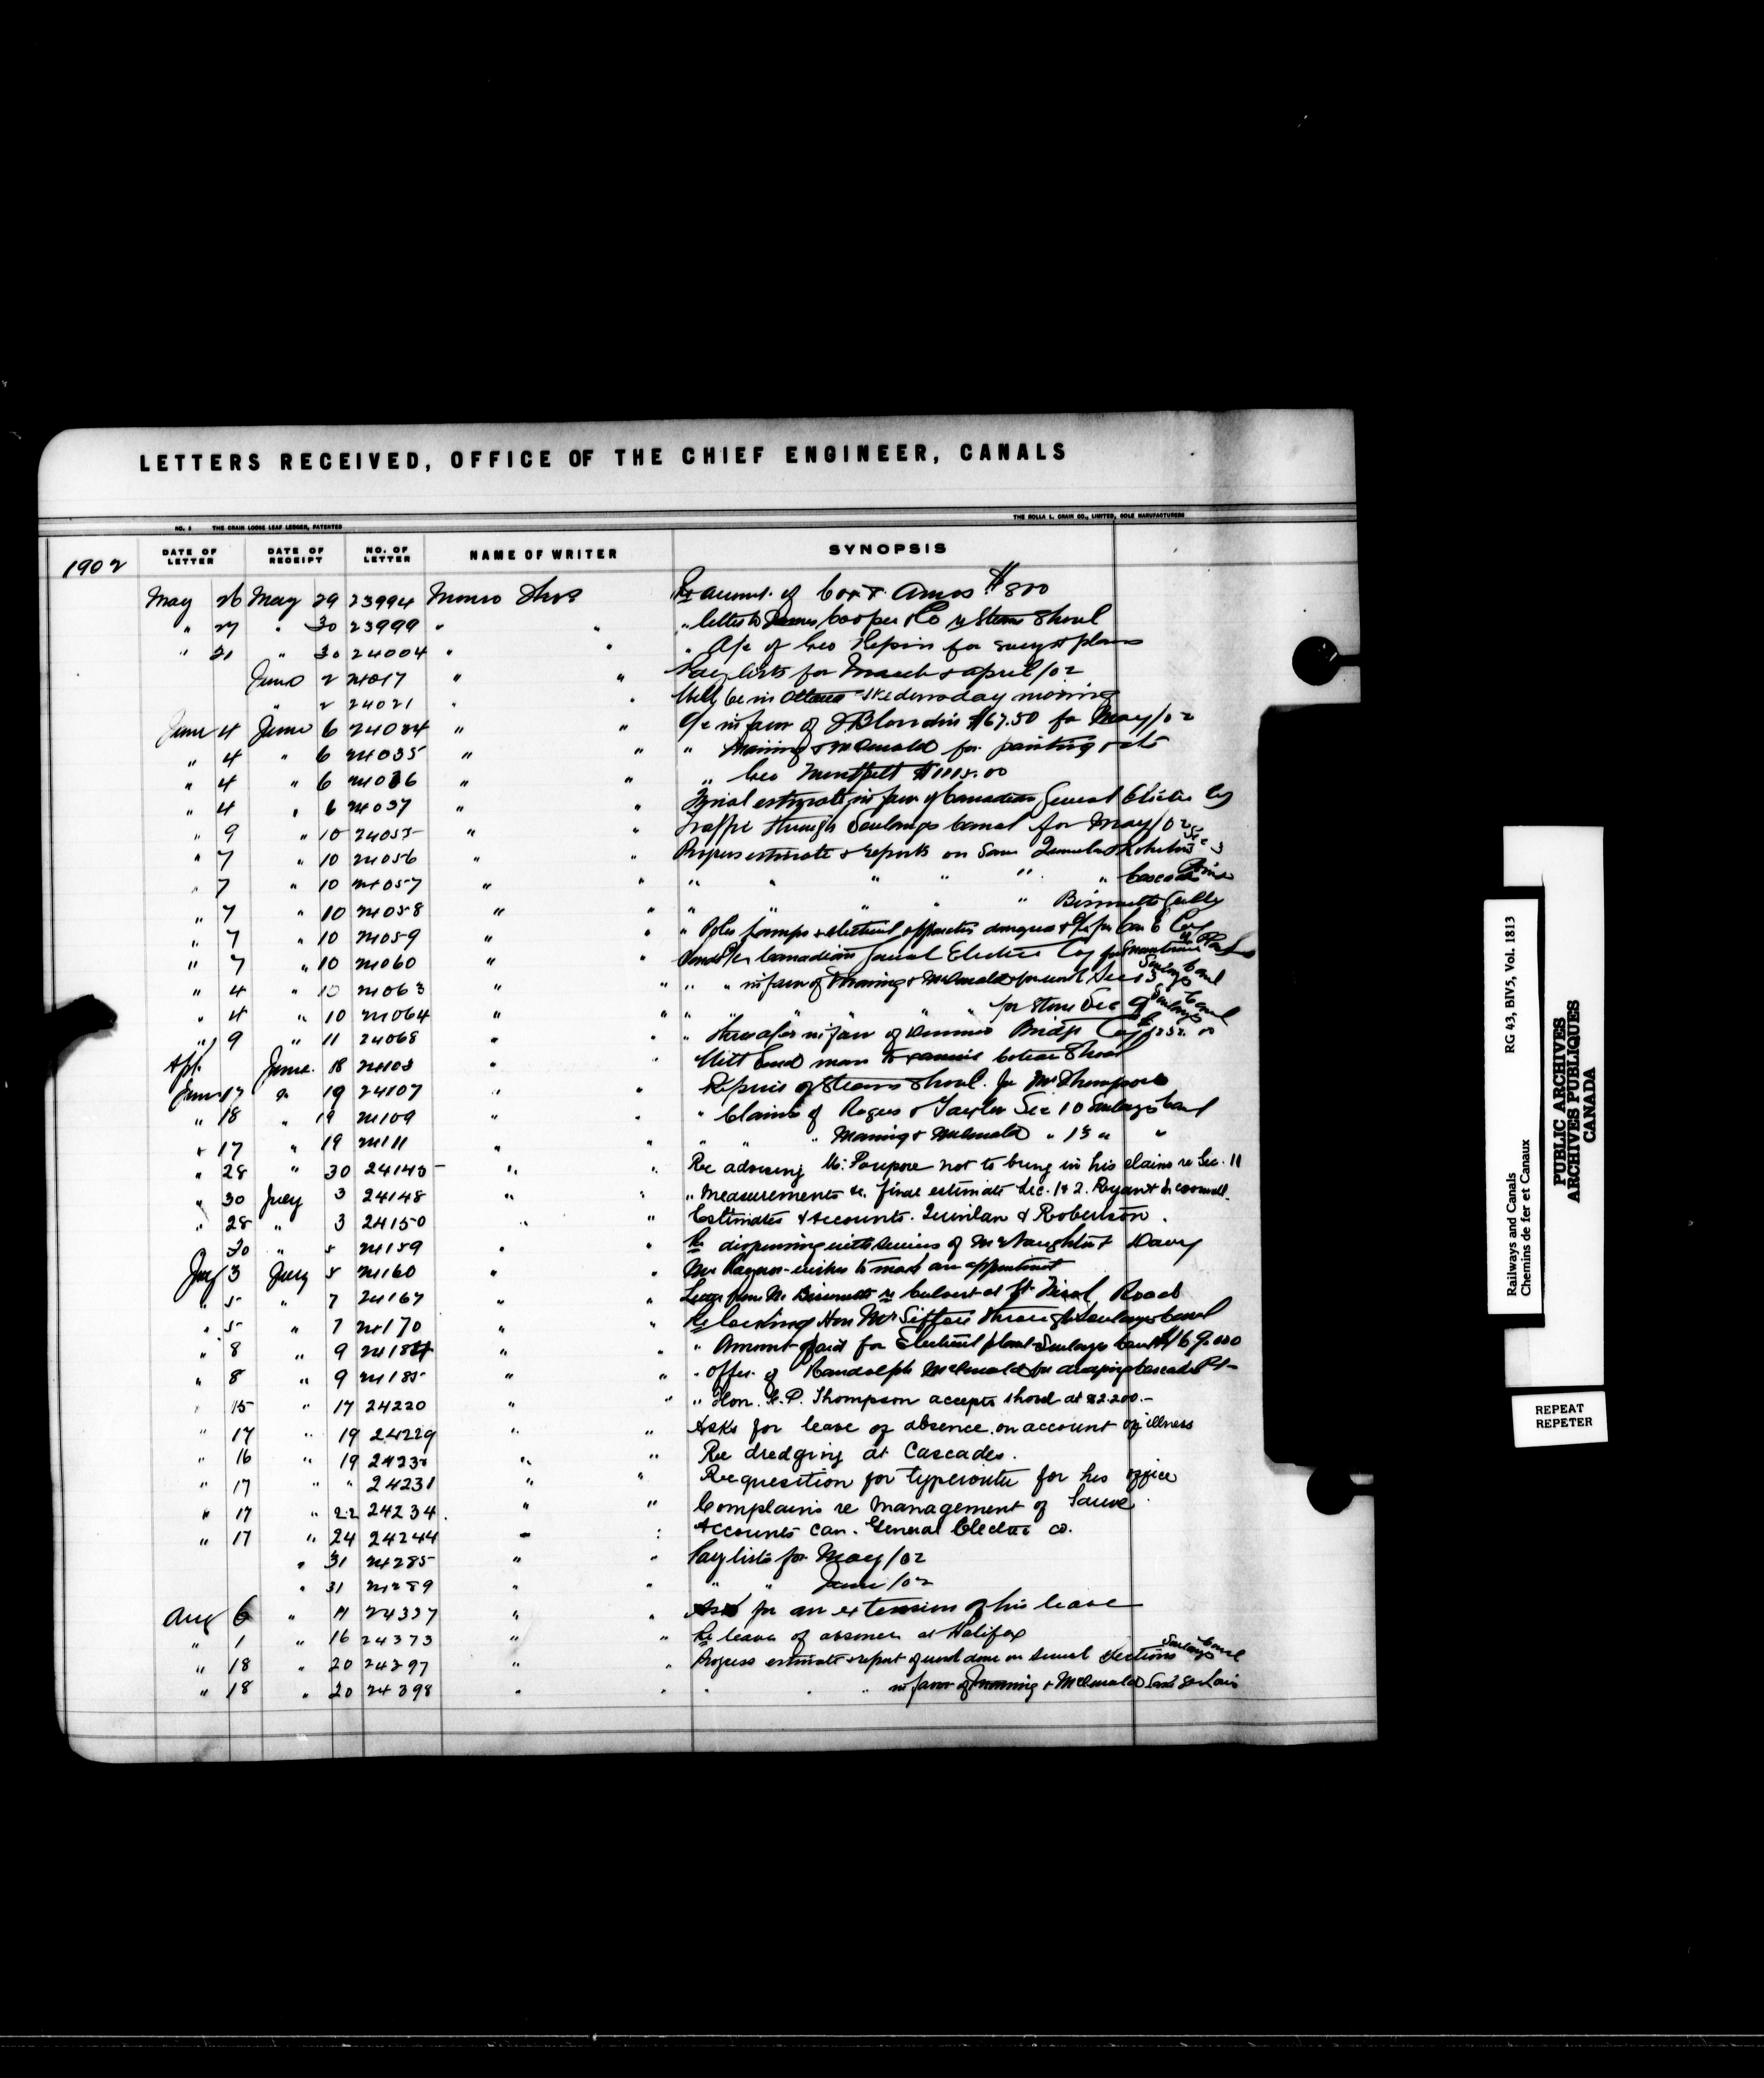 LETTERS RECEIVED, OFFICE OF THE CHIEF ENGINEER, CANALS
NO. 5 THE CRAIN LOOSE LEAF LEDGER, PATENTED
THE ROLLA L. CRAIN CO., LIMITED, SOLE MANUFACTURERS
1902 DATE OF LETTER DATE OF RECEIPT NO. OF LETTER NAME OF WRITER SYNOPSIS
May 26 May 29 23994 Monro Thos Re accunt. of Cox & Amos $800
" 27 " 30 23999 " " " letter to James Cooper & Co re Steam Shovel
" 21 " 30 24004 " " " A/c of Geo for plans
June 2 24017 " " Pay lists for March & April/02
" 2 24021 " " Will be in Ottawa Wednesday morning
June 4 June 6 24034 " " A/c in favor of J Blondin $67.50 for May/02
" 4 " 6 24035 " " " Manning & McDonald for painting
" 4 " 6 24036 " " " Geo
" 4 " 6 24037 " " Final estimate in favor of Canadian General Electric Coy
" 9 " 10 24055 " " Traffic through Soulanges Canal for May/02
" 7 " 10 24056 " " Progress estimate & reports on
" 7 " 10 24057 " " " " " " " " Cascades
" 7 " 10 24058 " " " " " " "
" 7 " 10 24059 " " " Poles lamps & electrical apparatus
" 7 " 10 24060 " " Canadian General Electric Coy for
" 4 " 10 24063 " " " " " in favor of Manning & McDonald for work Sec 13 Soulanges Canal
" 4 " 10 24064 " " " " " " for stone Sec 9 Soulanges Canal
" 9 " 11 24068 " " " in favor of Dominion Bridge Coy
Apl. June 18 24103 " " Will send man to Shovel
June 17 " 19 24107 " " Repairs of Steam Shovel. for Mr Thompson
" 18 " 19 24109 " " " Claims of Rogers & Taylor Sec 10 Soulanges Canal
" 17 " 19 24111 " " " " " Manning & McDonald " 13 " "
" 28 " 30 24145 " " Re advising Mr. Poupore not to bring in his claims re Sec. 11
" 30 July 3 24148 " " " Measurements re. final estimate Sec. 1 & 2. Ryan &
" 28 " 3 24150 " " Estimates & Accounts. Quinlan & Robertson.
30 " 5 24159 " " Re dispensing with services of McNaughton & Davy
July 3 July 5 24160 " " Mr wishes to make an appointment
" 5 " 7 24167 " " Letter from Mr. re Culvert at St Road
" 5 " 7 24170 " " Re locking Hon Mr Sifton through Soulanges Canal
" 8 " 9 24184 " " " Amount paid for Electrical plant Soulanges Canal $169,000
" 8 " 9 24185 " " " Offer of Randolph McDonald for dredging Cascades Pt
" 15 " 17 24220 " " " Hon. Thompson accepts shovel at $2.200.-
" 17 " 19 24229 " " Asks for leave of absence on account of illness
" 16 " 19 24230 " " Re dredging at Cascades.
" 17 " " 24231 " " Requesition for typewriter for his office
" 17 " 22 24234. " " Complains re management of Sauve.
" 17 " 24 24244 " " Accounts Can. General Electric co.
" 31 24285 " " Pay lists for May/02
" 31 24289 " " " " June/02
Aug 6 " 11 24337 " " Ask for an extension of his leave
" 1 " 16 24373 " " Re leave of absence at Halifax
" 18 " 20 24397 " " Progress estimate & report of work done on several sections Soulanges Canal
" 18 " 20 24398 " " " " " in favor of Manning & McDonald
Railways and Canals RG 43, BIV5, Vol. 1813
Chemins de fer et Canaux
PUBLIC ARCHIVES
ARCHIVES PUBLIQUES
CANADA
REPEAT
REPETER